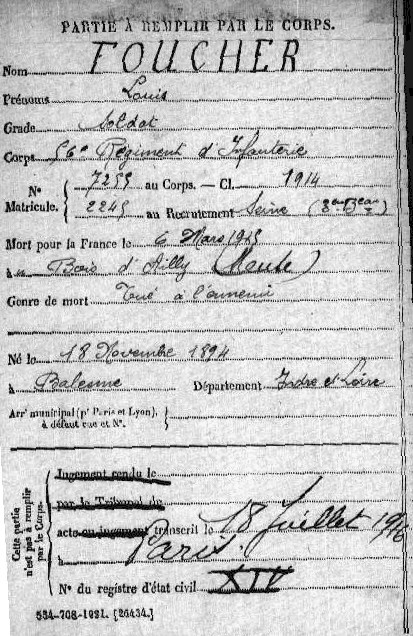 PARTIE À REMPLIR PAR LE CORPS.
Nom FOUCHER
Prénoms Louis
Grade Soldat
Corps 56e Régiment d'Infanterie
N° 7255 au Corps. — Cl. 1914
Matricule. 2245 au Recrutement Seine (3eme Beau)
Mort pour la France le 6 Mars 1915
à au Bois d'Ailly (Meuse)
Genre de mort Tué à l'ennemi
Né le 18 Novembre 1894
à Balesme Département Indre et Loire
Arrt municipal (pr Paris et Lyon),
à défaut rue et N°.
Cette partie n'est pas à remplir par le Corps.
Jugement rendu le
par le Tribunal de
acte ou jugement transcrit le 18 Juillet 1916
à Paris
N° du registre d'état civil XIV
534-708-1921. [26434.]